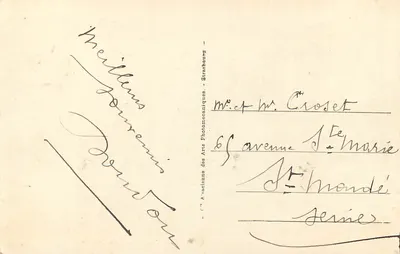 Meilleurs
souvenirs
Cie Alsacienne des Arts Photomécaniques - Strasbourg
Mr. et Me. Croset
65 avenue Ste Marie
St Mandé
Seine